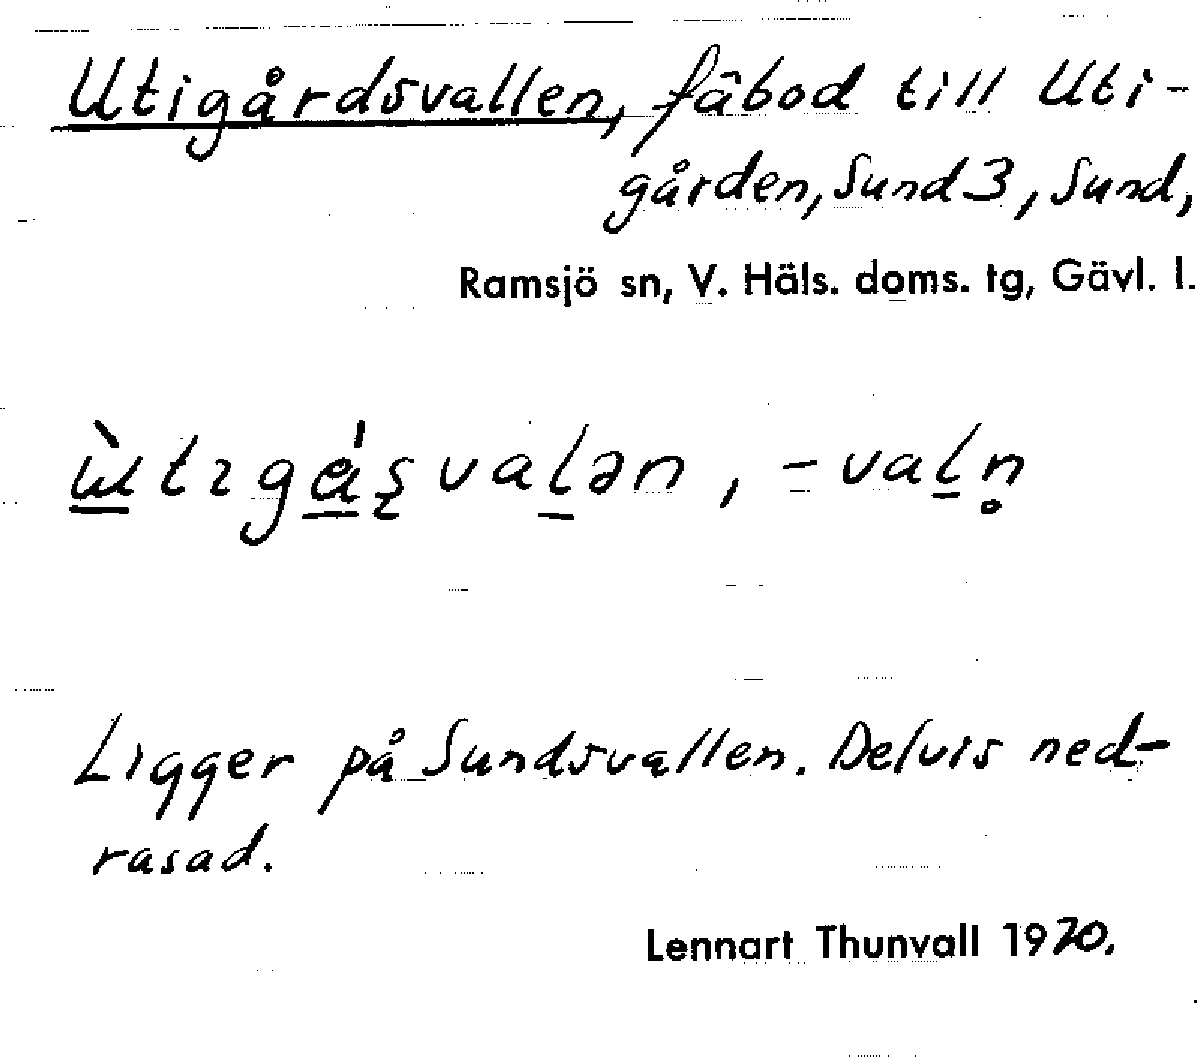 Utigårdsvallen, fäbod till Uti-
gården, Sund 3, Sund,
Ramsjö sn, V. Häls. doms. tg, Gävl. l.
Ligger på Sundsvallen. Delvis ned-
rasad.
Lennart Thunvall 1970.